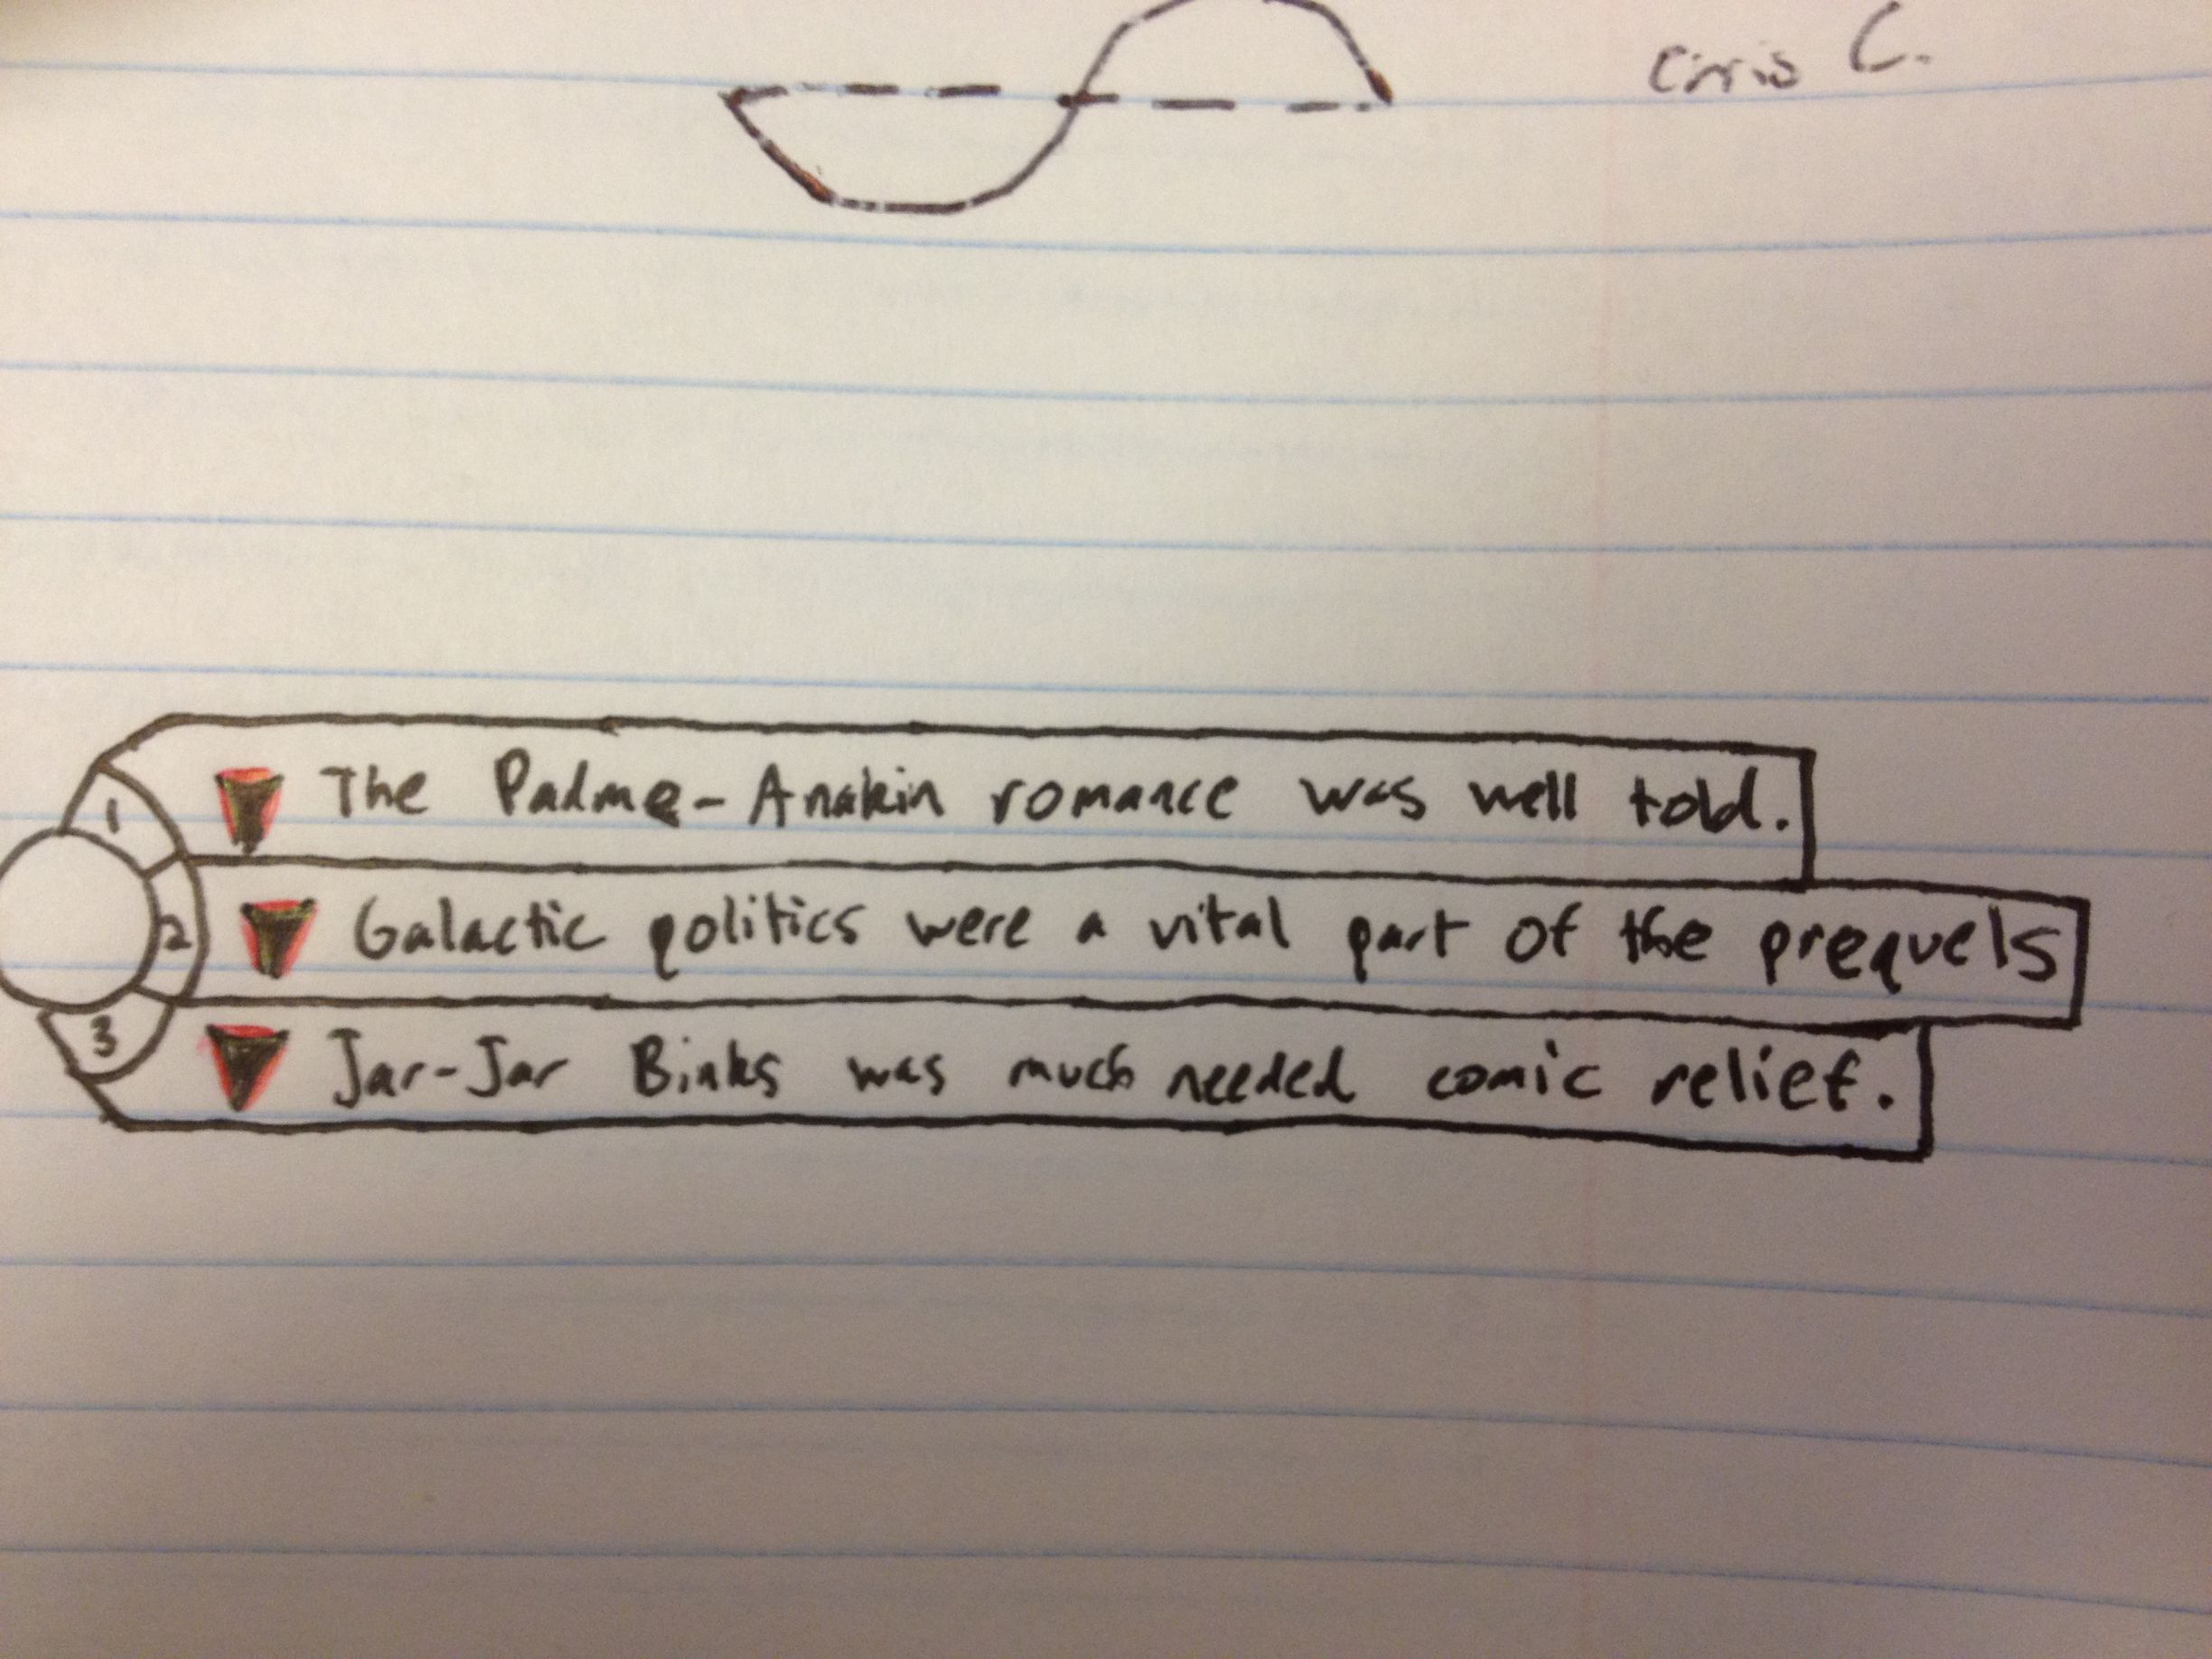 Chris C.
1 The Padme-Anakin romance was well told.
2 Galactic politics were a vital part of the prequels
3 Jar-Jar Binks was much needed comic relief.